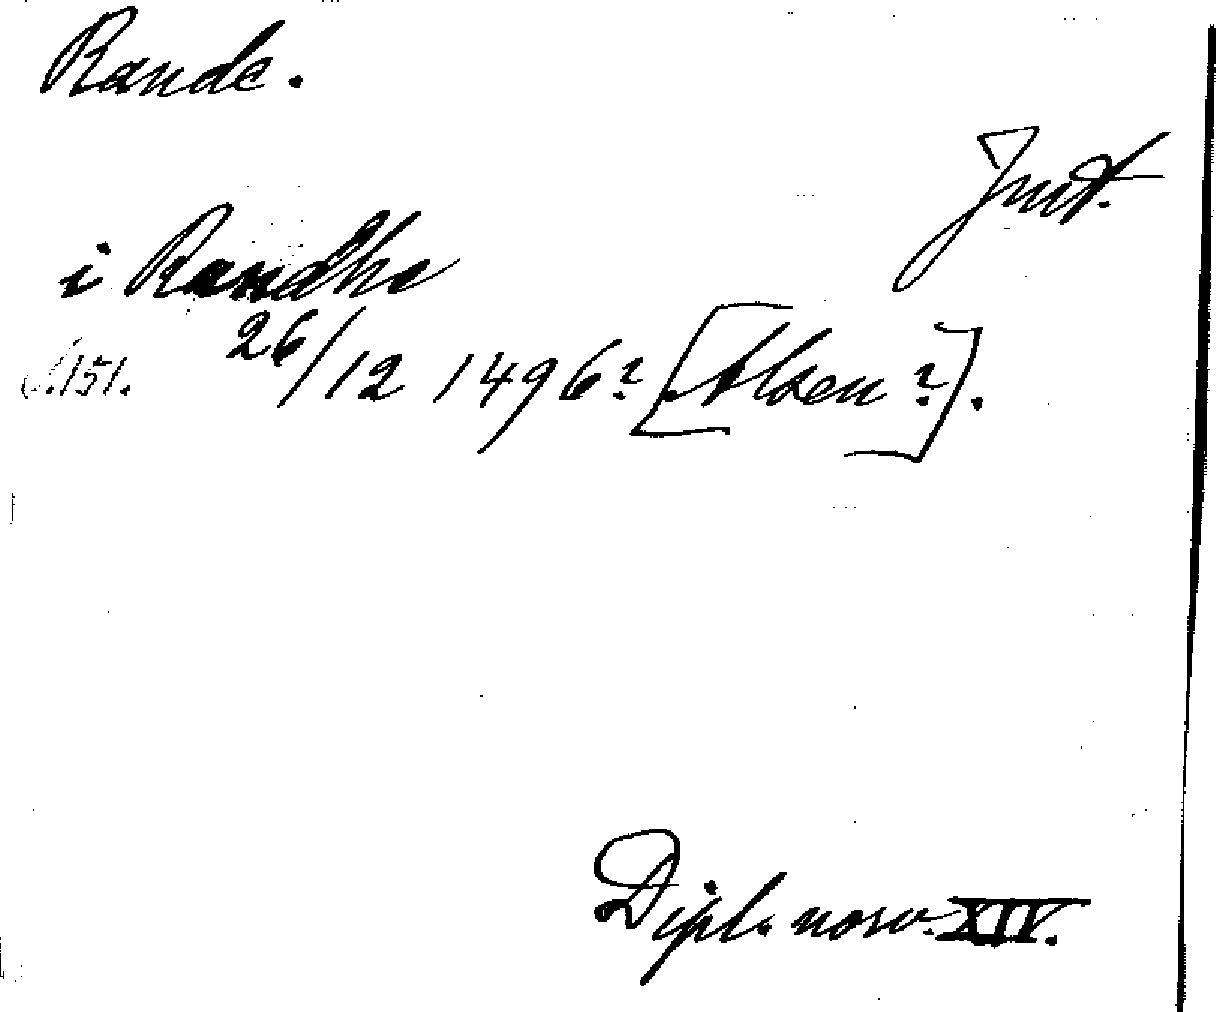 Rande.
Jmt.
i Randhe
S.151. 26/12 1496? [Alsen?].
Dipl. norv. XIV.